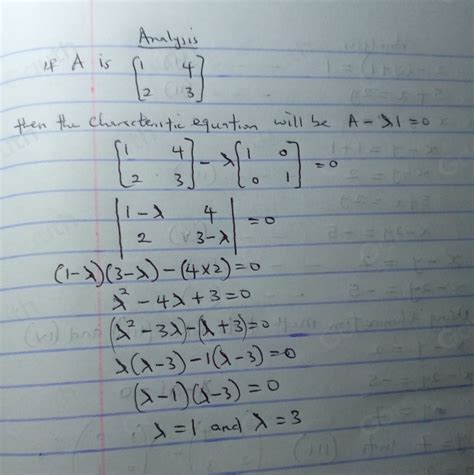 Analysis
If A is [1 4
2 3]
then the characteristic equation will be A - λI = 0
[1 4
2 3] - λ [1 0
0 1] = 0
|1-λ 4
2 3-λ| = 0
(1-λ)(3-λ) - (4×2) = 0
λ² - 4λ + 3 = 0
(λ² - 3λ) - (λ + 3) = 0
λ(λ-3) - 1(λ-3) = 0
(λ-1)(λ-3) = 0
λ = 1 and λ = 3